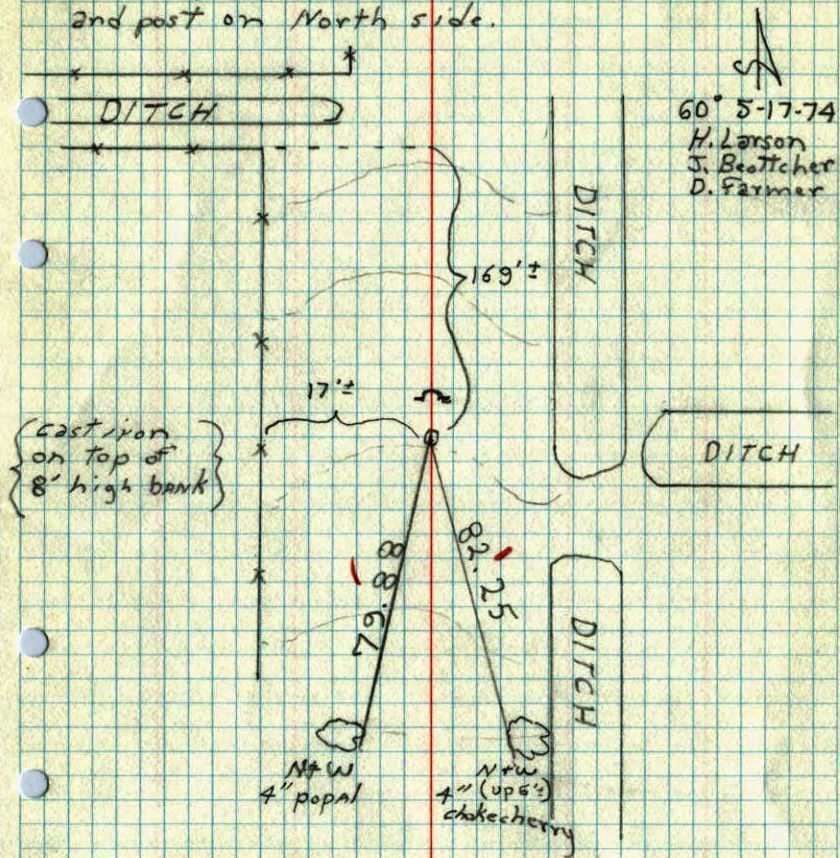 and post on North side.
DITCH
60° 5-17-74
H. Larson
J. Beottcher
D. Farmer
DITCH
169'±
17'±
{cast iron
on top of
8' high bank}
DITCH
88.67
82.25
DITCH
N+W
4" popal
N+W
4" (up 6'±)
chokecherry